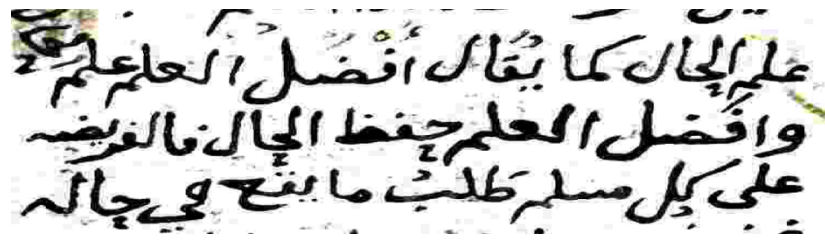 علم الحال كما يقال افضل العلم علم
وافضل العلم حفظ الحال فالفريضه
على كل مسلم طلب ما يقع في حاله